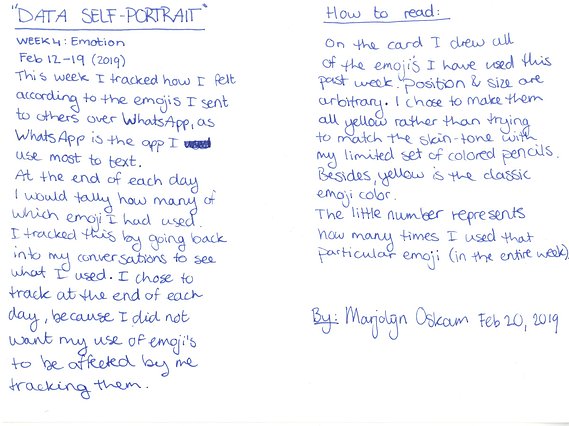 "DATA SELF-PORTRAIT"
WEEK 4: Emotion
Feb 12-19 (2019)
This week I tracked how I felt
according to the emojis I sent
to others over WhatsApp, as
WhatsApp is the app I
use most to text.
At the end of each day
I would tally how many of
which emoji I had used.
I tracked this by going back
into my conversations to see
what I used. I chose to
track at the end of each
day, because I did not
want my use of emoji's
to be affected by me
tracking them.
How to read:
On the card I drew all
of the emoji's I have used this
past week. Position & size are
arbitrary. I chose to make them
all yellow rather than trying
to match the skin-tone with
my limited set of colored pencils.
Besides, yellow is the classic
emoji color.
The little number represents
how many times I used that
particular emoji (in the entire week)
By: Marjolijn Oskam Feb 20, 2019